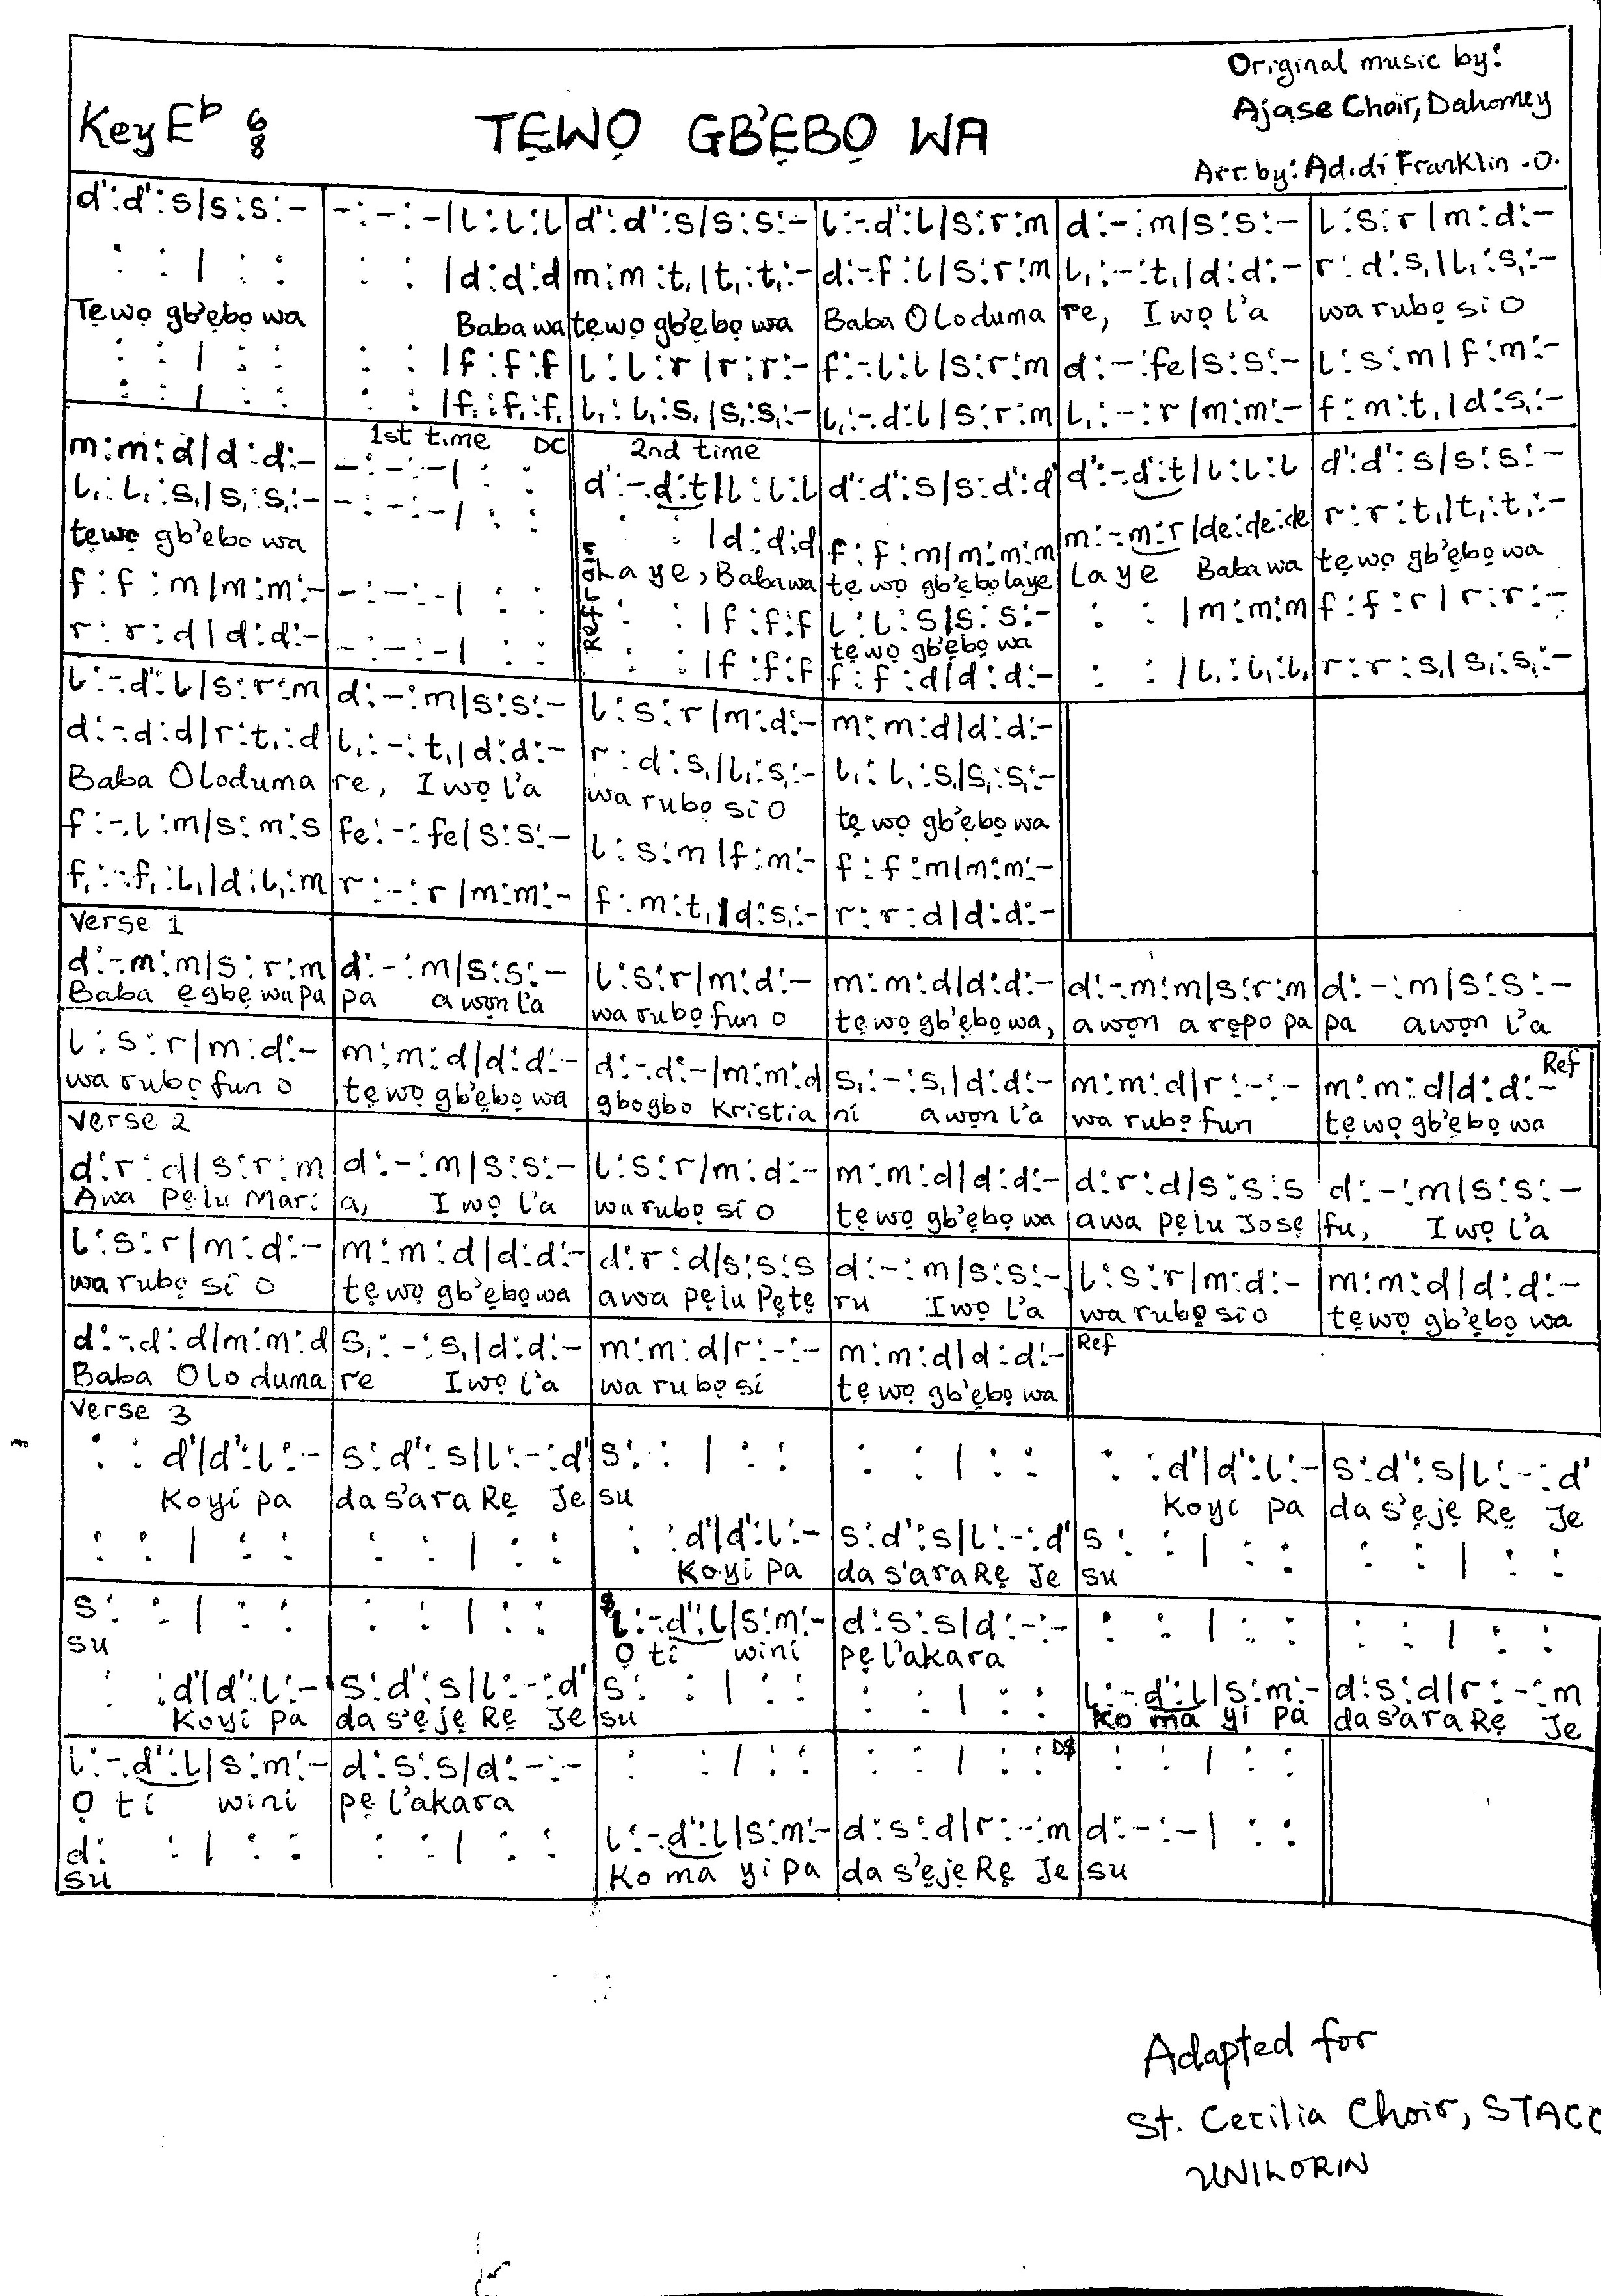 Original music by:
Key E♭ 6/8 TẸWỌ GB'ẸBỌ WA Ajase Choir, Dahomey
Arr. by: Adidi Franklin -O.
d':d':s|s:s:- | -:-:-|l:l:l | d':d':s|s:s:- | l:-.d':l|s:r:m | d:-:m|s:s:- | l:s:r|m:d:-
: : | : : | : : |d:d:d | m:m:t,|t,:t,:- | d:-.f:l|s:r:m | l,:-:t,|d:d:- | r:d:s,|l,:s,:-
Tẹwọ gb'ẹbọ wa Baba wa tẹwọ gb'ẹbọ wa Baba Oloduma re, Iwọ l'a wa rubọ si O
: : | : : | : : |f:f:f | l:l:r|r:r:- | f:-.l:l|s:r:m | d:-:fe|s:s:- | l:s:m|f:m:-
: : | : : | : : |f,:f,:f, | l,:l,:s,|s,:s,:- | l,:-.d:l|s:r:m | l,:-:r|m:m:- | f:m:t,|d:s,:-
1st time DC 2nd time
m:m:d|d:d:- | -:-:-| : : | d':-.d':t|l:l:l | d':d':s|s:d':d' | d':-.d':t|l:l:l | d':d':s|s:s:-
l,:l,:s,|s,:s,:- | -:-:-| : : | : : |d:d:d | f:f:m|m:m:m | m:-.m:r|de:de:de | r:r:t,|t,:t,:-
tẹwọ gb'ẹbo wa Refrain Laye, Baba wa tẹwọ gb'ẹbọ laye Laye Baba wa tẹwọ gb'ẹbọ wa
f:f:m|m:m:- | -:-:-| : : | : : |f:f:f | l:l:s|s:s:- | : : |m:m:m | f:f:r|r:r:-
tẹwọ gb'ẹbọ wa
r:r:d|d:d:- | -:-:-| : : | : : |f:f:f | f:f:d|d:d:- | : : |l,:l,:l, | r:r:s,|s,:s,:-
l:-.d':l|s:r:m | d:-:m|s:s:- | l:s:r|m:d:- | m:m:d|d:d:-
d:-.d:d|r:t,:d | l,:-:t,|d:d:- | r:d:s,|l,:s,:- | l,:l,:s,|s,:s,:-
Baba Oloduma re, Iwọ l'a wa rubọ si O tẹwọ gb'ẹbọ wa
f:-.l:m|s:m:s | fe:-:fe|s:s:- | l:s:m|f:m:- | f:f:m|m:m:-
f,:-.f,:l,|d:l,:m | r:-:r|m:m:- | f:m:t,|d:s,:- | r:r:d|d:d:-
Verse 1
d:-.m:m|s:r:m | d:-:m|s:s:- | l:s:r|m:d:- | m:m:d|d:d:- | d:-.m:m|s:r:m | d:-:m|s:s:-
Baba ẹgbẹ wa pa pa awọn l'a wa rubọ fun o tẹwọ gb'ẹbọ wa, awọn arẹpo pa pa awọn l'a
l:s:r|m:d:- | m:m:d|d:d:- | d:-.d:-|m:m:d | s,:-:s,|d:d:- | m:m:d|r:-:- | m:m:d|d:d:- Ref
wa rubọ fun o tẹwọ gb'ẹbọ wa gbogbo Kristia ni awọn l'a wa rubọ fun tẹwọ gb'ẹbọ wa
Verse 2
d:r:d|s:r:m | d:-:m|s:s:- | l:s:r|m:d:- | m:m:d|d:d:- | d:r:d|s:s:s | d:-:m|s:s:-
Awa pẹlu Mari a, Iwọ l'a wa rubọ si o tẹwọ gb'ẹbọ wa awa pẹlu Josẹ fu, Iwọ l'a
l:s:r|m:d:- | m:m:d|d:d:- | d:r:d|s:s:s | d:-:m|s:s:- | l:s:r|m:d:- | m:m:d|d:d:-
wa rubọ si o tẹwọ gb'ẹbọ wa awa pẹlu Pẹtẹ ru Iwọ l'a wa rubọ si o tẹwọ gb'ẹbọ wa
d:-.d:d|m:m:d | s,:-:s,|d:d:- | m:m:d|r:-:- | m:m:d|d:d:- Ref
Baba Oloduma re Iwọ l'a wa rubọ si tẹwọ gb'ẹbọ wa
Verse 3
: :d'|d':l:- | s:d':s|l:-:d' | s: : | : : | : : | : : | : :d'|d':l:- | s:d':s|l:-:d'
Koyi pa da s'ara Rẹ Je su Koyi pa da s'ẹjẹ Rẹ Je
: : | : : | : : | : : | : :d'|d':l:- | s:d':s|l:-:d' | s: : | : : | : : | : :
Koyi pa da s'ara Rẹ Je su
s: : | : : | : : | : : | $ l:-.d':l|s:m:- | d:s:s|d:-:- | : : | : : | : : | : :
su Ọ ti wini pẹ l'akara
: :d'|d':l:- | s:d':s|l:-:d' | s: : | : : | : : | : : | l:-.d':l|s:m:- | d:s:d|r:-:m
Koyi pa da s'ẹjẹ Rẹ Je su Ko ma yi pa da s'ara Rẹ Je
l:-.d':l|s:m:- | d:s:s|d:-:- | : : | : : | : : | : : D$ | : : | : :
Ọ ti wini pẹ l'akara
d: : | : : | : : | : : | l:-.d':l|s:m:- | d:s:d|r:-:m | d:-:-| : :
su Ko ma yi pa da s'ẹjẹ Rẹ Je su
Adapted for
St. Cecilia Choir, STACC
UNILORIN